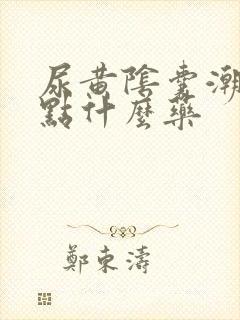 尿黄陰囊潮
點什麼藥
鄭東濤